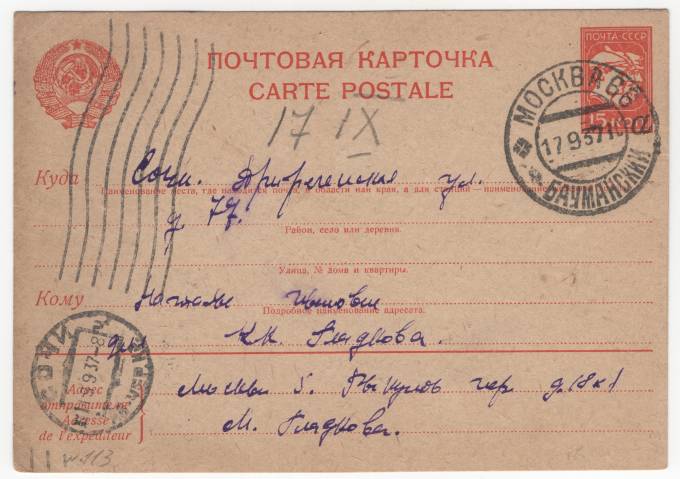 ПОЧТОВАЯ КАРТОЧКА
CARTE POSTALE
ПОЧТА-СССР
15
МОСКВА 66
17 9 37
БАУМАНСКИЙ
17 IX
Куда
Сочи. Приреченская ул.
Наименование места, где находится почта, и области или края, а для станции – наименование
д. 77.
Район, село или деревня.
Улица, № дома и квартиры.
Кому
Наталье
Подробное наименование адресата.
для К.К. Гладкова.
СОЧИ
9 37
Адрес отправителя
Adresse de l'expéditeur
Москва 5. пер. д. 18 к 1
М. Гладкова.